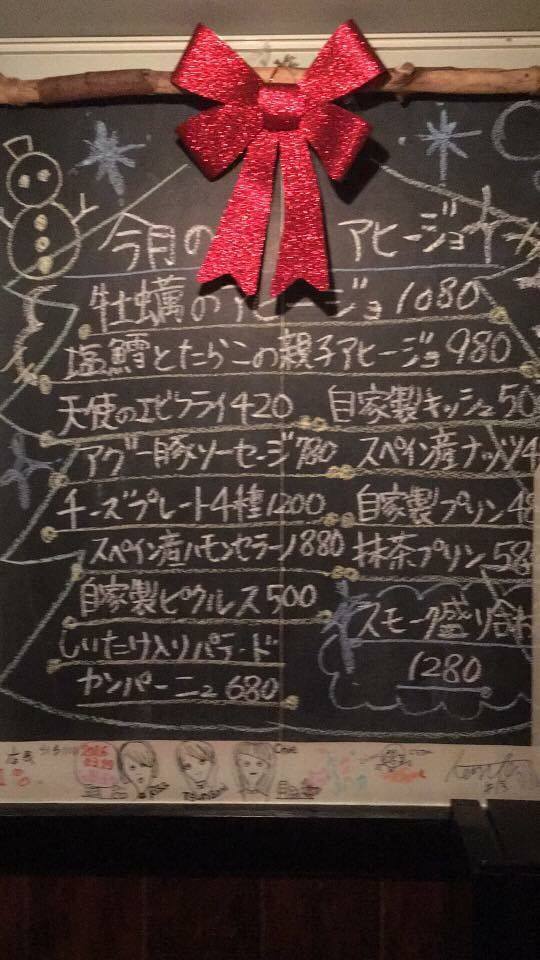 今月の アヒージョ
牡蠣のアヒージョ 1080
塩鱈とたらこの親子アヒージョ 980
天使のエビフライ 420 自家製キッシュ 50
アグー豚ソーセージ 780 スペイン産ナッツ 4
チーズプレート4種 1200 自家製プリン 48
スペイン産ハモンセラーノ 880 抹茶プリン 58
自家製ピクルス 500
スモーク盛り合わ
1280
しいたけ入りパテ・ド
カンパーニュ 680